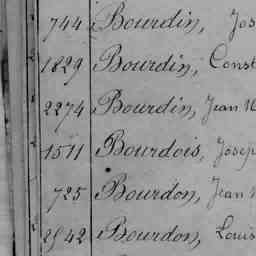 744 Bourdin, Jos
1829 Bourdin, Const
2274 Bourdin, Jean
1511 Bourdois, Josep
725 Bourdon, Jean
2542 Bourdon, Louis